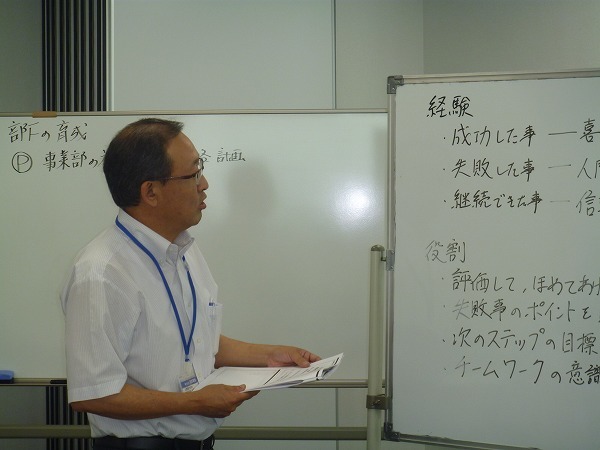 部下の育成
Ⓟ 事業部の 計画
経験
・成功した事 ― 喜
・失敗した事 ― 人
・継続できた事 ― 信
役割
・評価して、ほめてあげ
・失敗事のポイントを
・次のステップの目標
・チームワークの意識